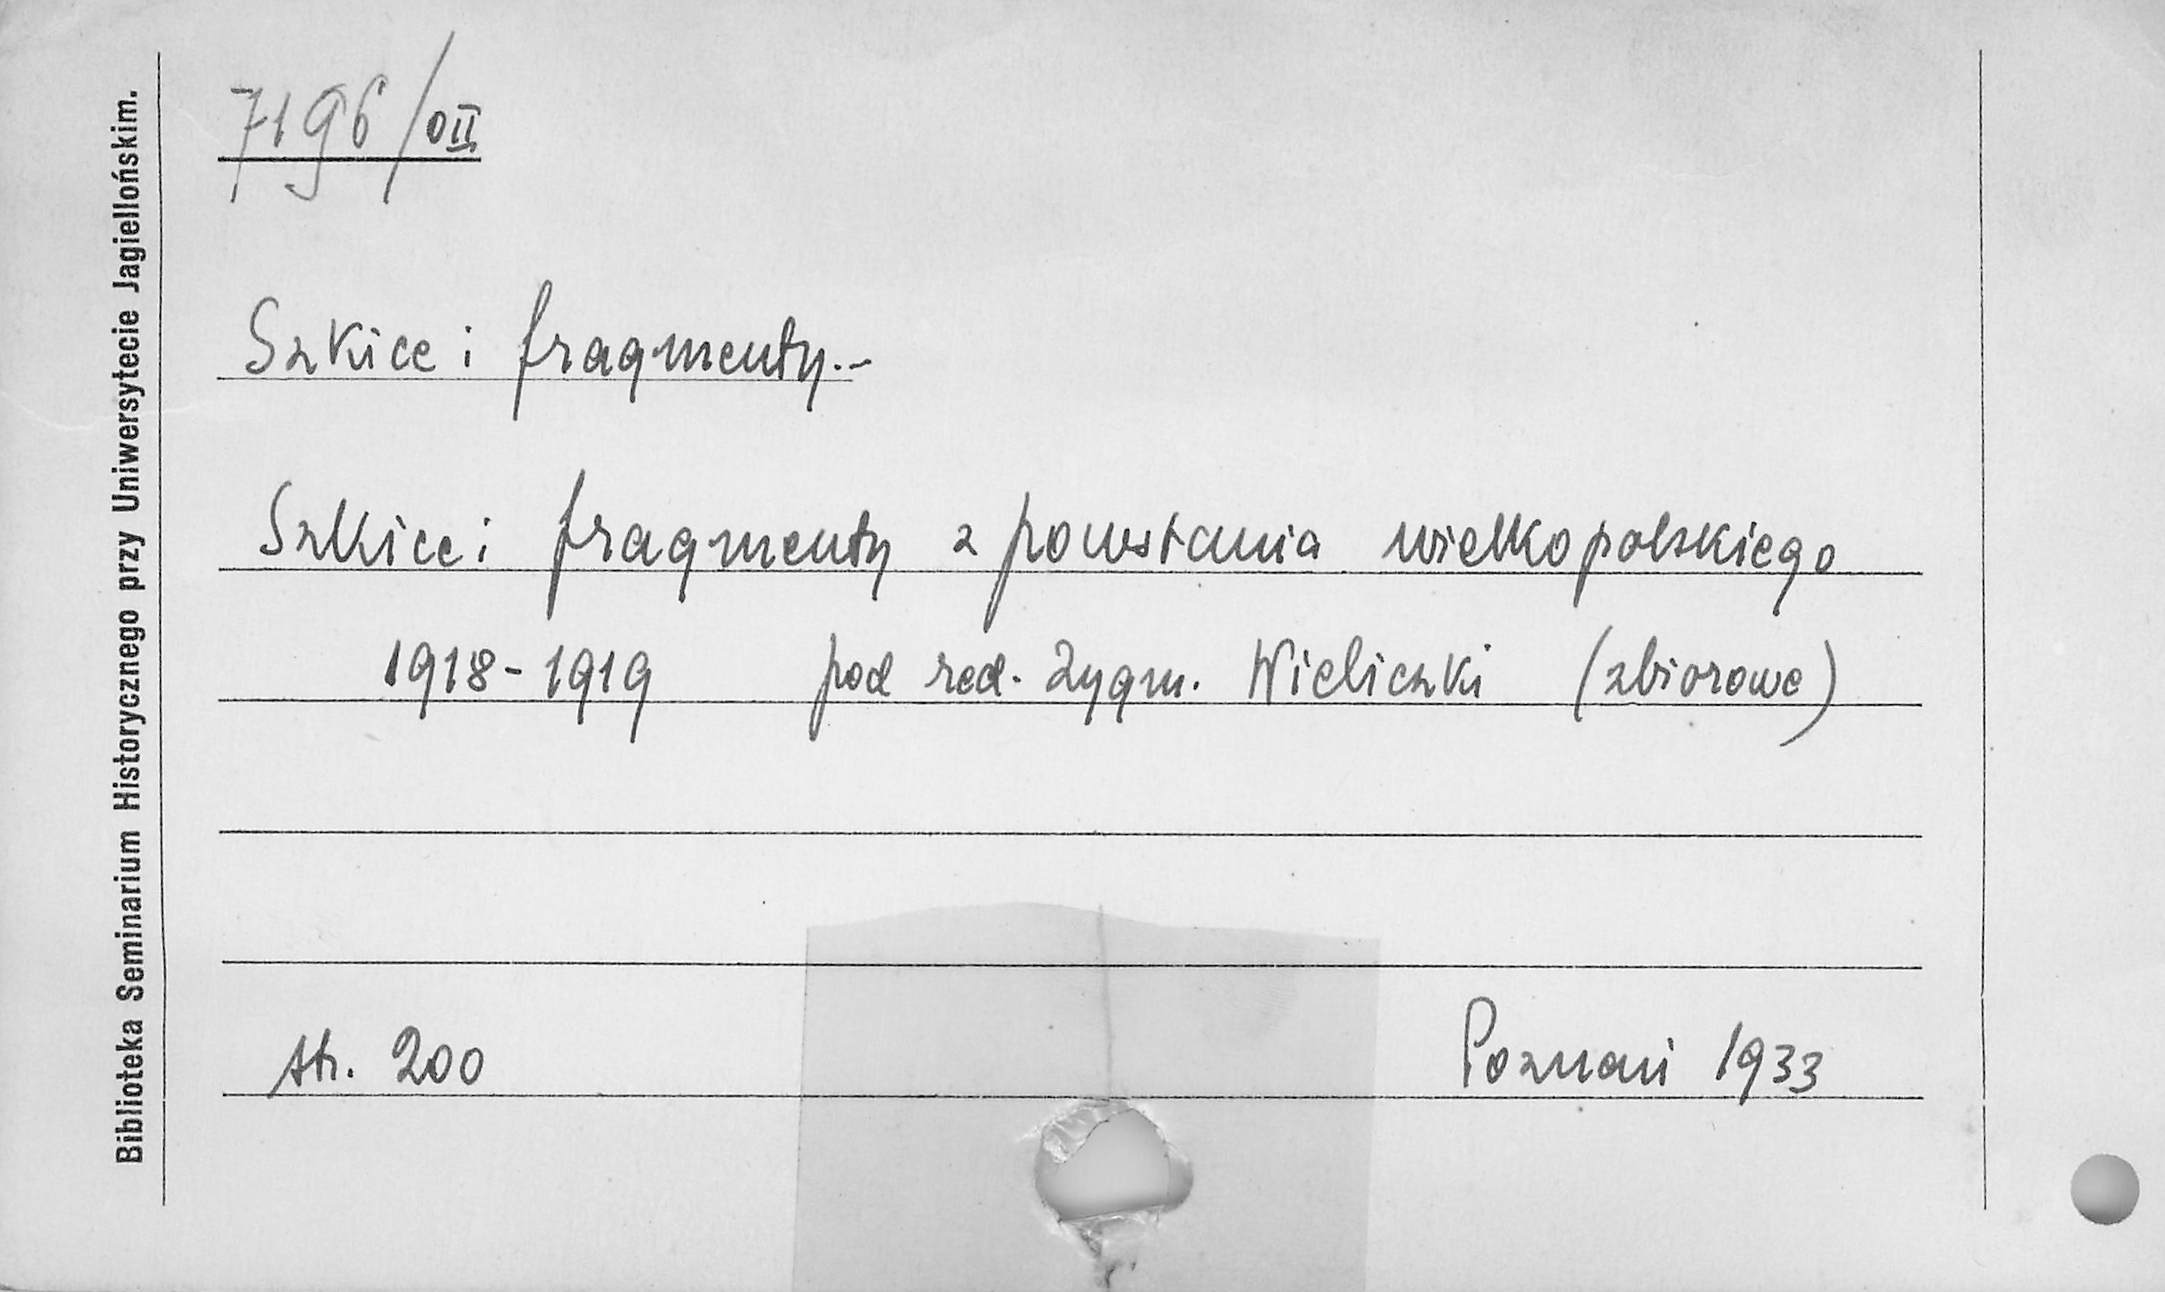 Biblioteka Seminarium Historycznego przy Uniwersytecie Jagiellońskim.
7196/0II
Szkice i fragmenty.-
Szkice i fragmenty z powstania wielkopolskiego
1918-1919 pod red. Zygm. Wieliczki (zbiorowe)
str. 200
Poznań 1933